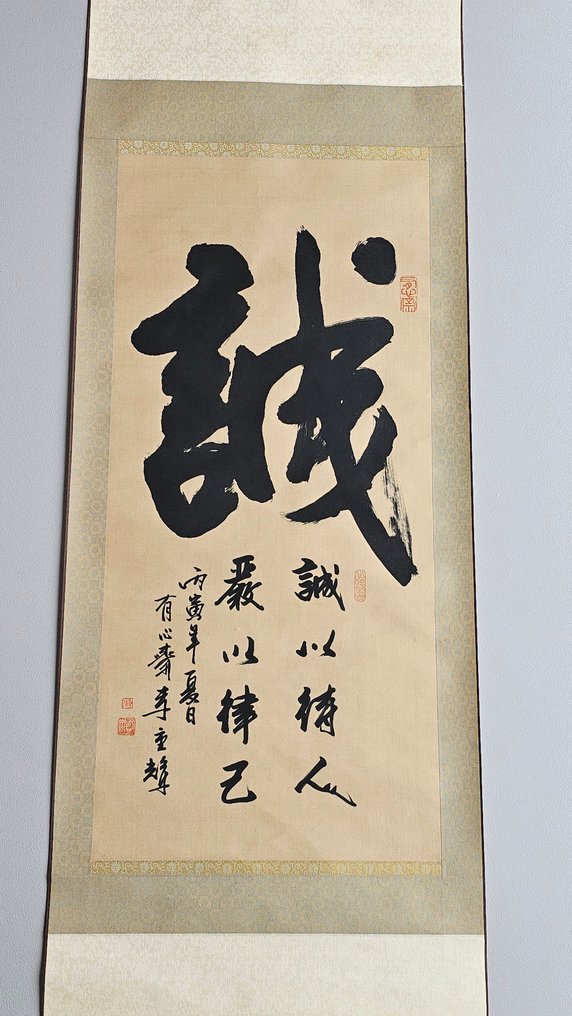 誠
誠以待人
嚴以律己
丙寅年夏日
有心齋李重